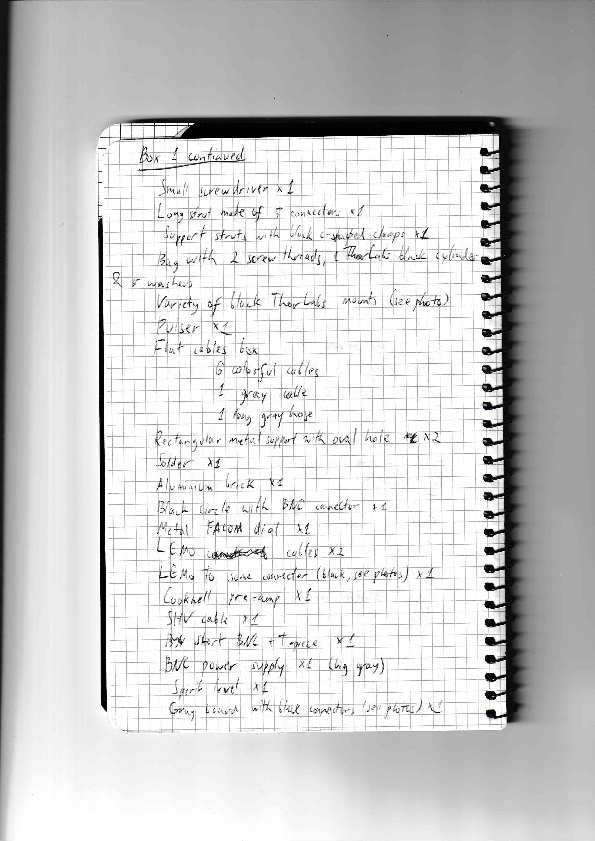 Box 1 continued
Small screwdriver x1
Long strut made of 5 connectors x1
Support struts with black c-shaped clamps x1
Bag with 2 screw threads, 1 ThorLabs black cylinder
& 5 washers
Variety of black ThorLabs mounts (see photo)
Pulser x1
Flat cables box
6 colorful cables
1 gray cable
1 long gray hose
Rectangular metal support with oval hole x2
Solder x1
Aluminium brick x1
Black circle with BNC connector x1
Metal FACOM dial x1
LEMO cables x2
LEMO to some connector (black, see photos) x1
Cookwell pre-amp x1
SHV cable x1
short BNC + T-piece x1
BNC power supply x1 (big gray)
Spirit level x1
Gray board with black connectors (see photos) x1